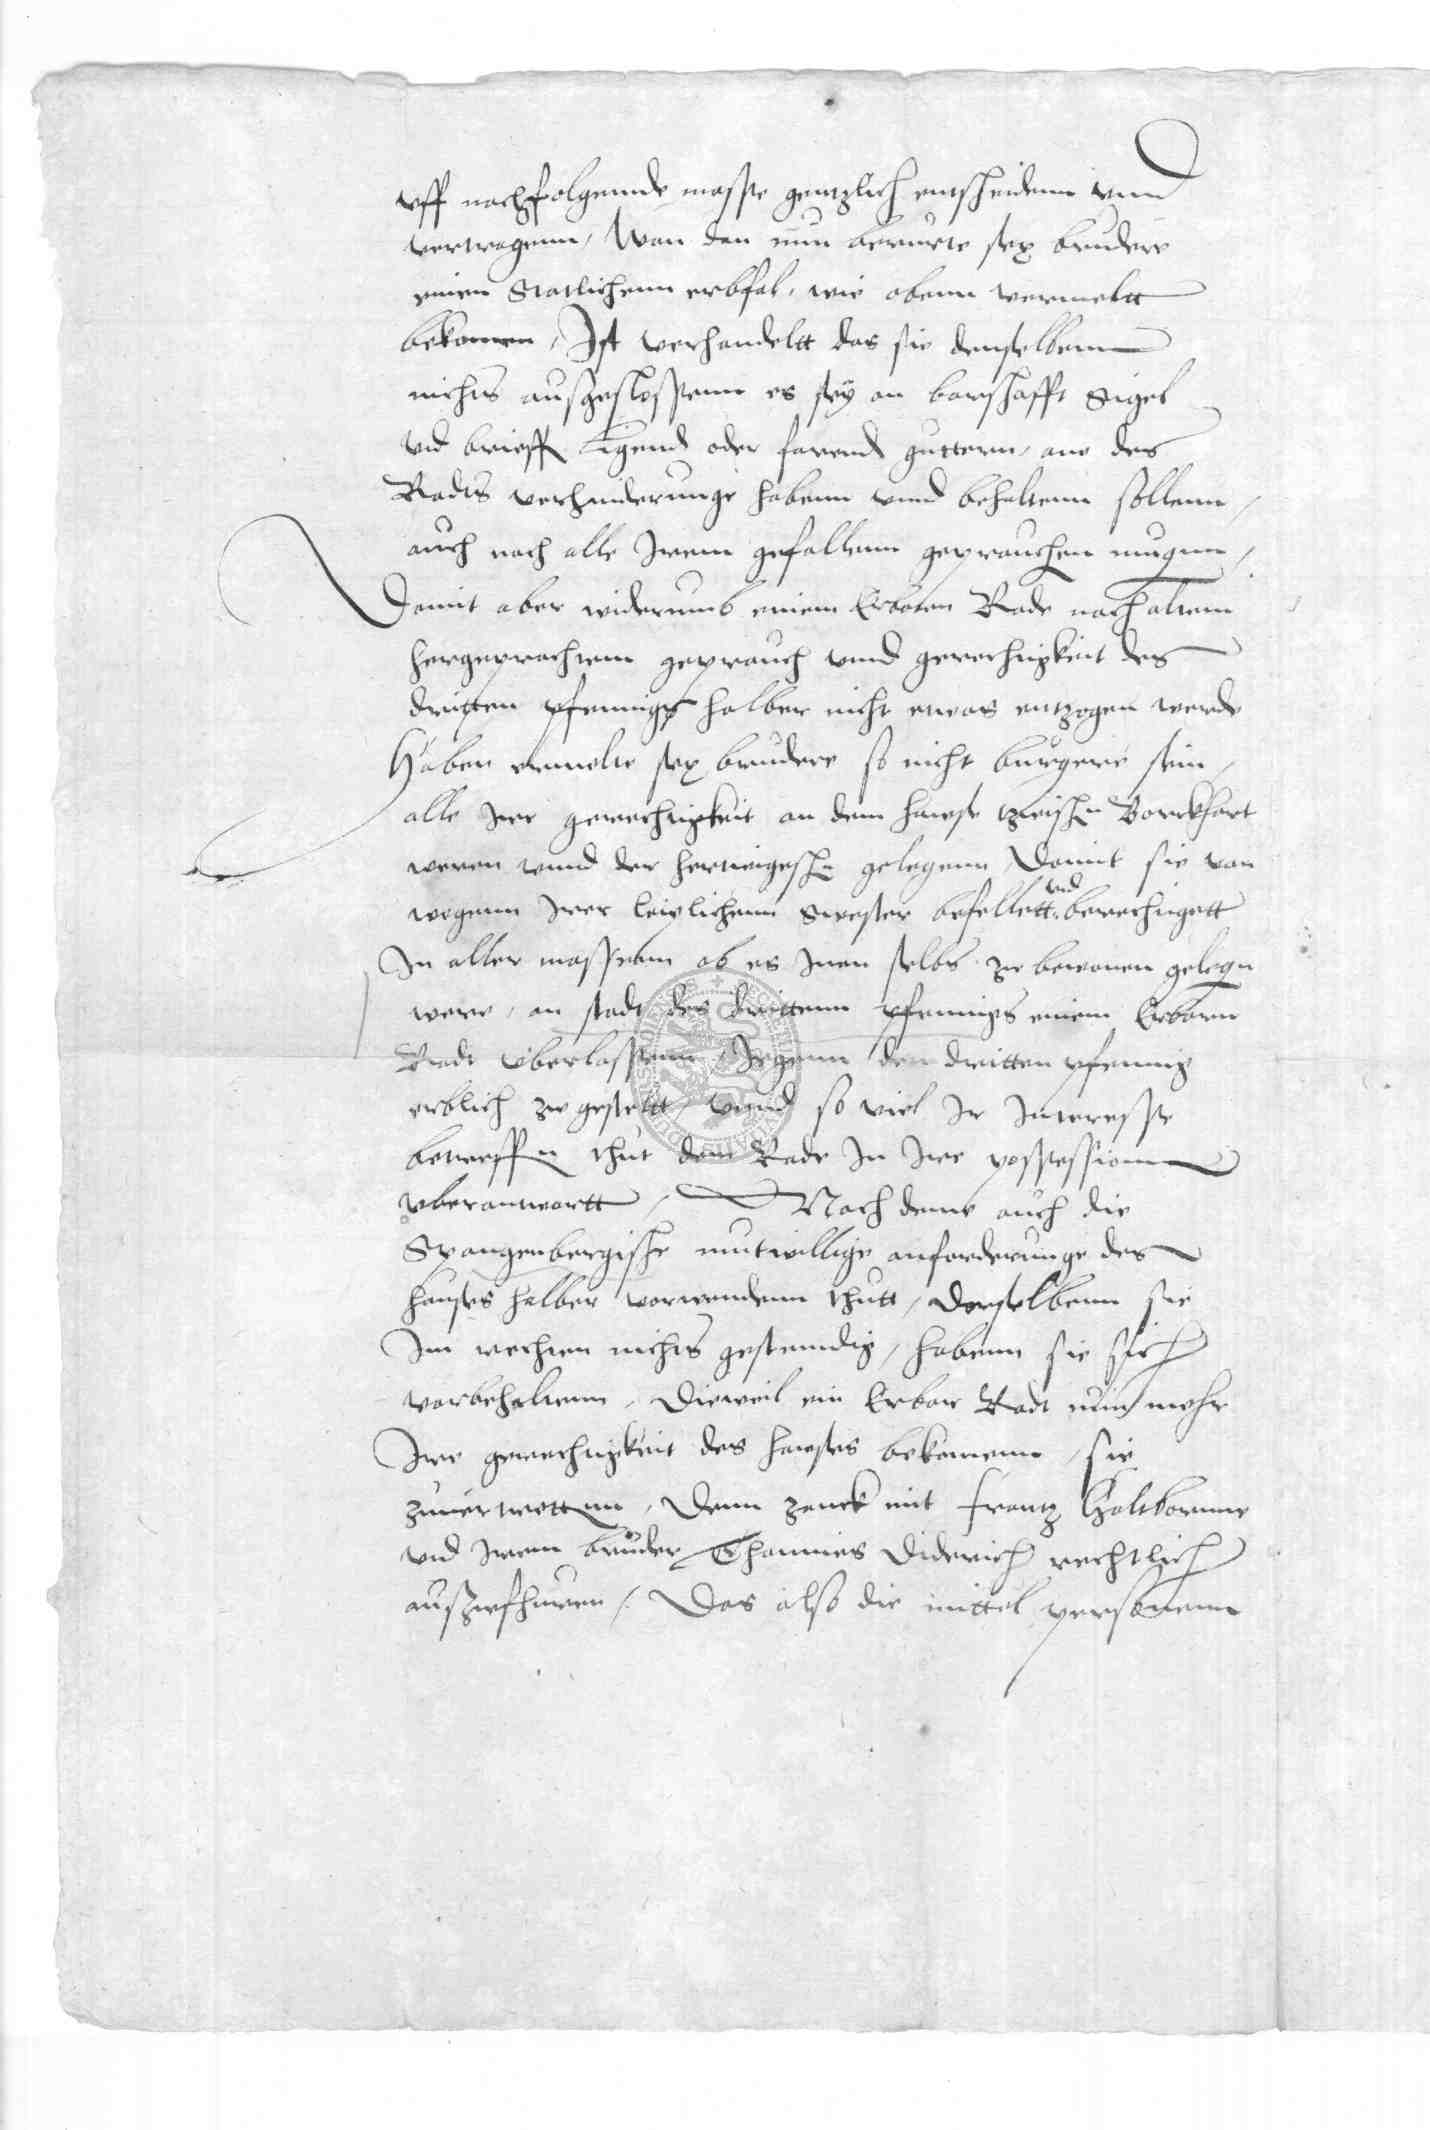 vff nachfolgennde masse gentzlich entscheidenn vnnd
vertragenn, Wan dan nun berurte sex brudere
einen Statlichenn erbfal, wie obenn vermeltt
bekomen, Ist verhandeltt das sie denselbenn
nichts außgeslossenn es sey an barschafft Sigel
vnd brieff ligend oder farend guttern, ane des
Radts verhinderunge habenn vnnd behaltenn sollenn,
auch nach alle Irem gefallenn geprauchen mugenn,
Damit aber widerumb einem Erbarn Rade nach altem
hergeprachtem geprauch vnnd gerechtigkeit des
dritten pfennigs halber nicht etwas entzogen werde
Haben ermelte sex brudere so nicht burgere sein,
alle Ire gerechtigkeit an dem hawse zwischen Borckhart
weren vnnd der gelegenn, Damit sie von
wegenn Irer leiplichenn Swester befellett vnd berechtigett
In aller massenn ob es Inen selbs zu bewonen gelegen
were, an stadt des drittenn pfennigs einem Erbarn
Radt vberlassenn, Jegenn den dritten pfennig
erblich zu gestelltt, vnnd so viel Ir Interesse
betreffen thut dem Rade In Ire possessionn
vberantwortt, Nach deme auch die
Spangenbergische mutwillige anforderunge des
hauses halber vorwendenn thutt, Derselbenn sie
Im rechten nichts gestenndig, habenn sie sich
vorbehaltenn, Dieweil ein Erbar Radt nun mehr
Ire gerechtigkeit des hawses bekomenn, sie
zuuertrettenn, Denn zanck mit Frantz Holtbornne
vnd Irem bruder Thonnies Diderich rechtlich
außzufhuren, Das also die mittel personenn